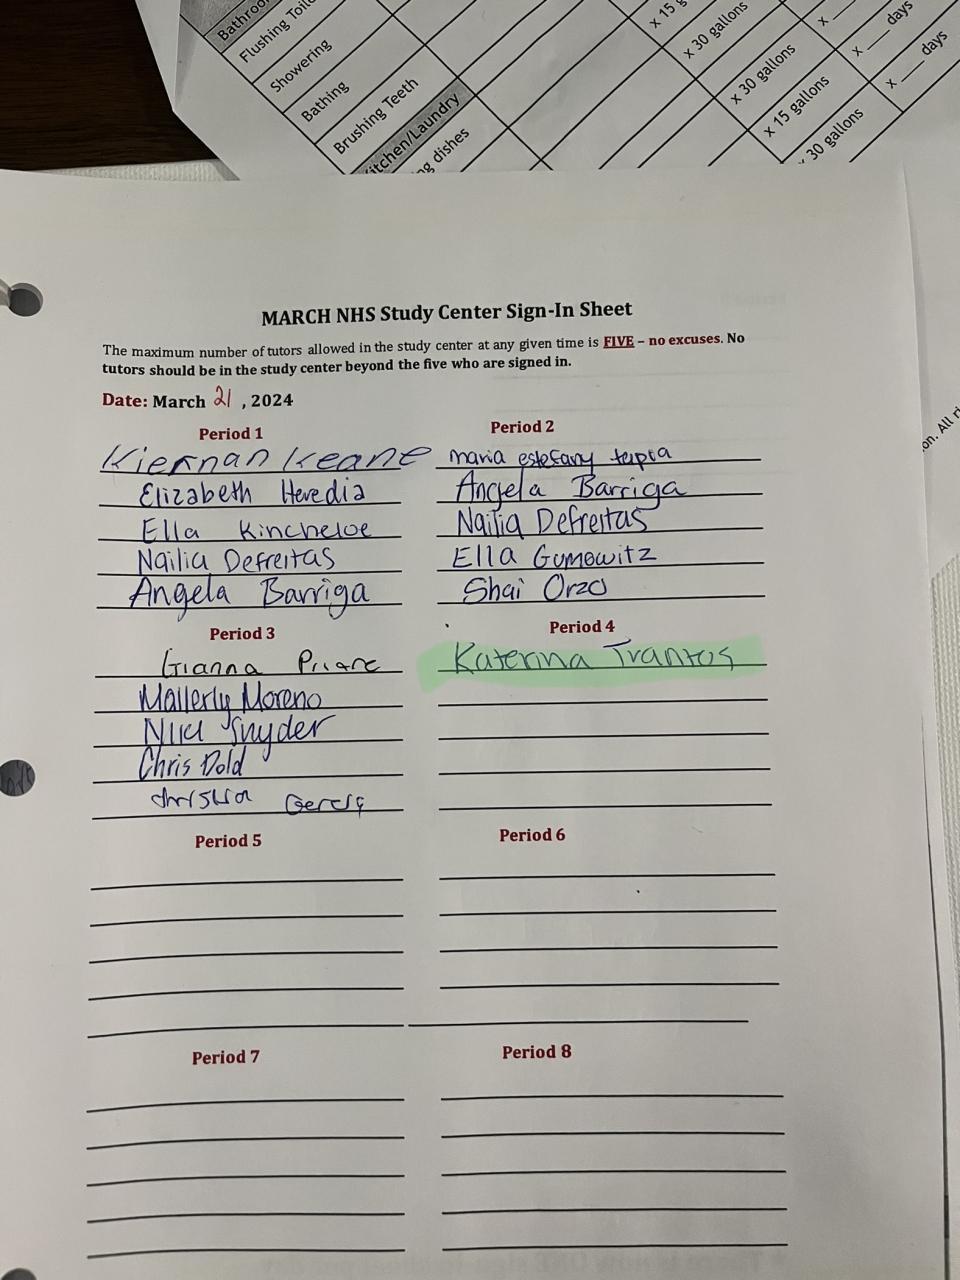 Bathroo
Flushing Toile
Showering
Bathing
Brushing Teeth
itchen/Laundry
ng dishes
x 15 g
x 30 gallons
x 30 gallons
x 15 gallons
30 gallons
x ___
x ___ days
x ___ days
on. All ri
MARCH NHS Study Center Sign-In Sheet
The maximum number of tutors allowed in the study center at any given time is FIVE – no excuses. No
tutors should be in the study center beyond the five who are signed in.
Date: March 21 , 2024
Period 1
Kiernan Keane
Elizabeth Heredia
Ella Kincheloe
Nailia Defreitas
Angela Barriga
Period 2
maria estefany tapia
Angela Barriga
Nailia Defreitas
Ella Gumowitz
Shai Orzo
Period 3
Gianna
Mallerly Moreno
Niki Snyder
Chris Dold
Period 4
Katerina Trantos
Period 5
Period 6
Period 7
Period 8